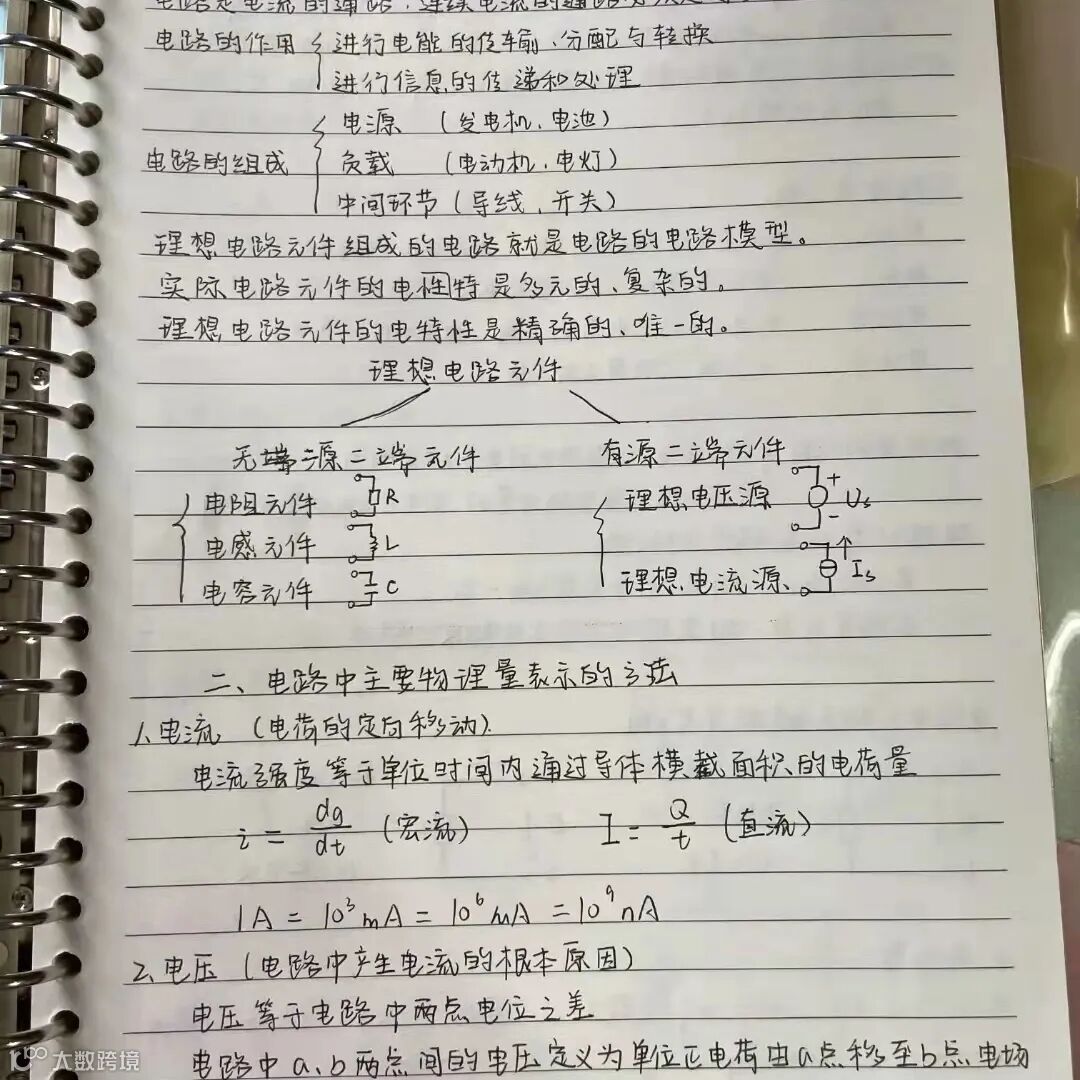 电路是电流的通路,连续电流的通路
电路的作用 进行电能的传输、分配与转换
进行信息的传递和处理
电源 (发电机、电池)
电路的组成 负载 (电动机、电灯)
中间环节 (导线、开关)
理想电路元件组成的电路就是电路的电路模型。
实际电路元件的电性特是多元的、复杂的。
理想电路元件的电特性是精确的、唯一的。
理想电路元件
无端源二端元件 有源二端元件
电阻元件 R 理想电压源 + - Us
电感元件 L
电容元件 C 理想电流源 Is
二、电路中主要物理量表示的方法
1、电流 (电荷的定向移动)
电流强度等于单位时间内通过导体横截面积的电荷量
i = dq/dt (流) I = Q/t (直流)
1A = 10³mA = 10⁶μA = 10⁹nA
2、电压 (电路中产生电流的根本原因)
电压等于电路中两点电位之差
电路中a、b两点间的电压定义为单位正电荷由a点移至b点电场
大数跨境